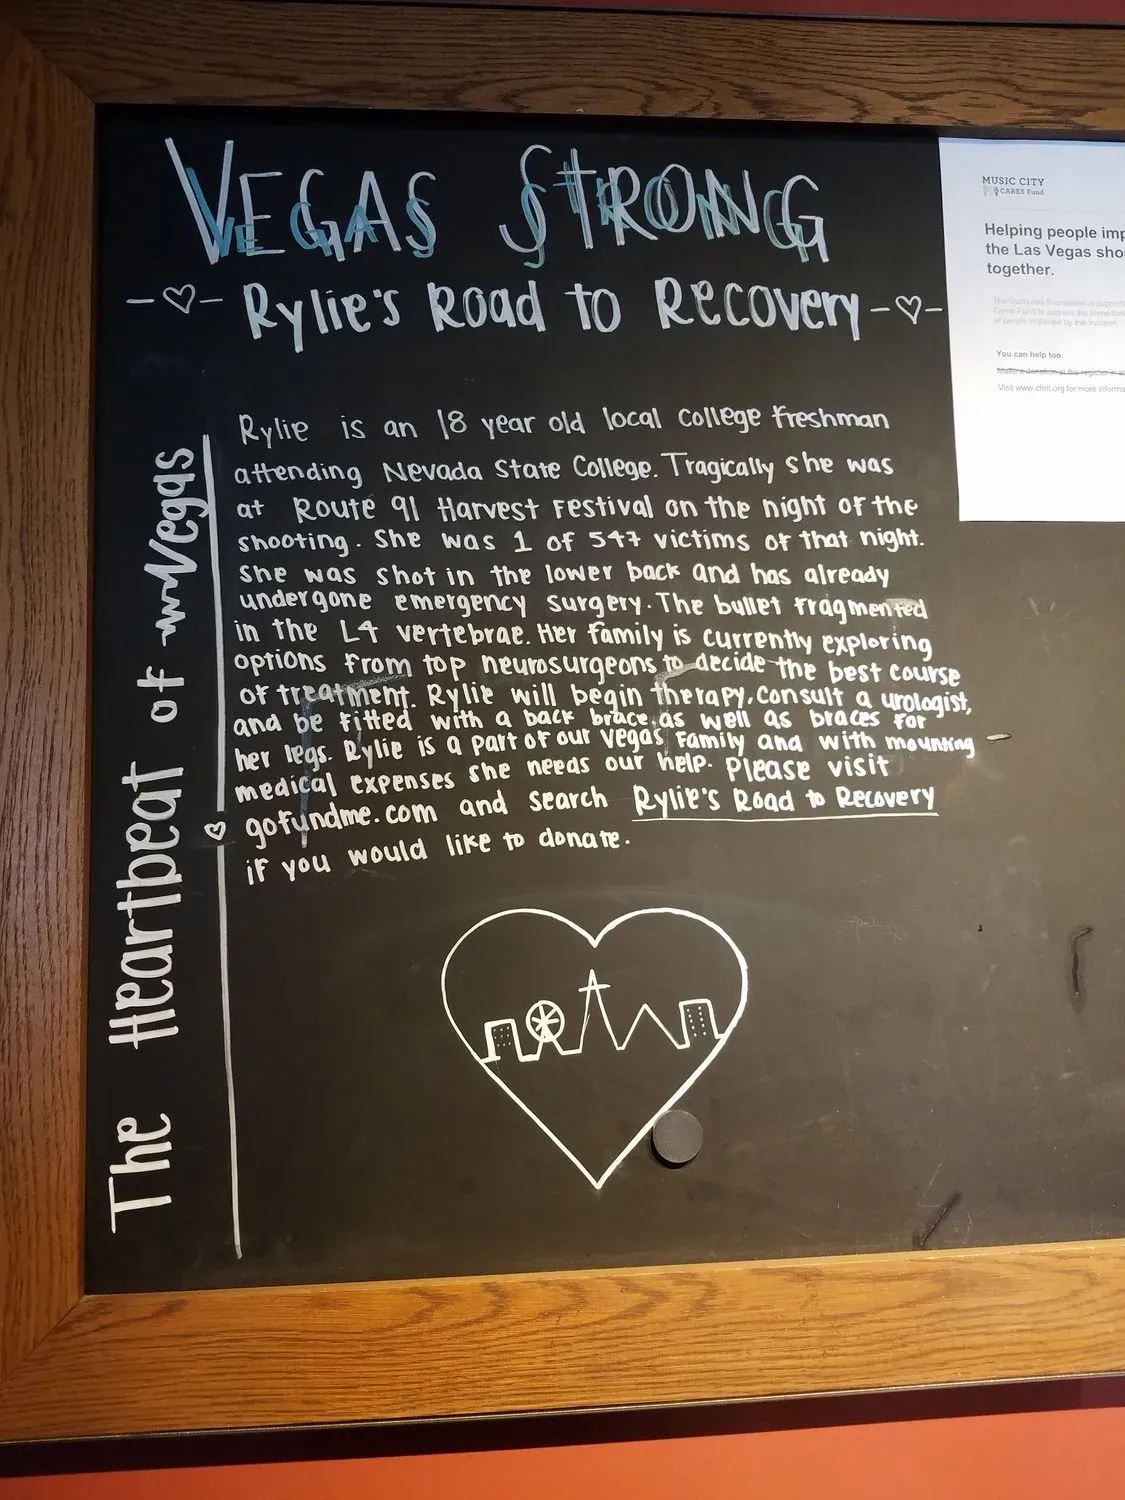 VEGAS STRONG
Rylie's Road to Recovery
Rylie is an 18 year old local college freshman
attending Nevada State College. Tragically she was
at Route 91 Harvest Festival on the night of the
shooting. She was 1 of 547 victims of that night.
She was shot in the lower back and has already
undergone emergency surgery. The bullet fragmented
in the L4 vertebrae. Her family is currently exploring
options from top neurosurgeons to decide the best course
of treatment. Rylie will begin therapy, consult a urologist,
and be fitted with a back brace, as well as braces for
her legs. Rylie is a part of our Vegas Family and with mounting
medical expenses she needs our help. Please visit
gofundme.com and search Rylie's Road to Recovery
if you would like to donate.
The Heartbeat of Vegas
MUSIC CITY
CARES Fund
Helping people imp
the Las Vegas sho
together.
The Starbucks Foundation is support
Cares Fund to address the immediate
of people impacted by the incident.
You can help too.
Make a donation at the register in
Visit www.cfmt.org for more informa